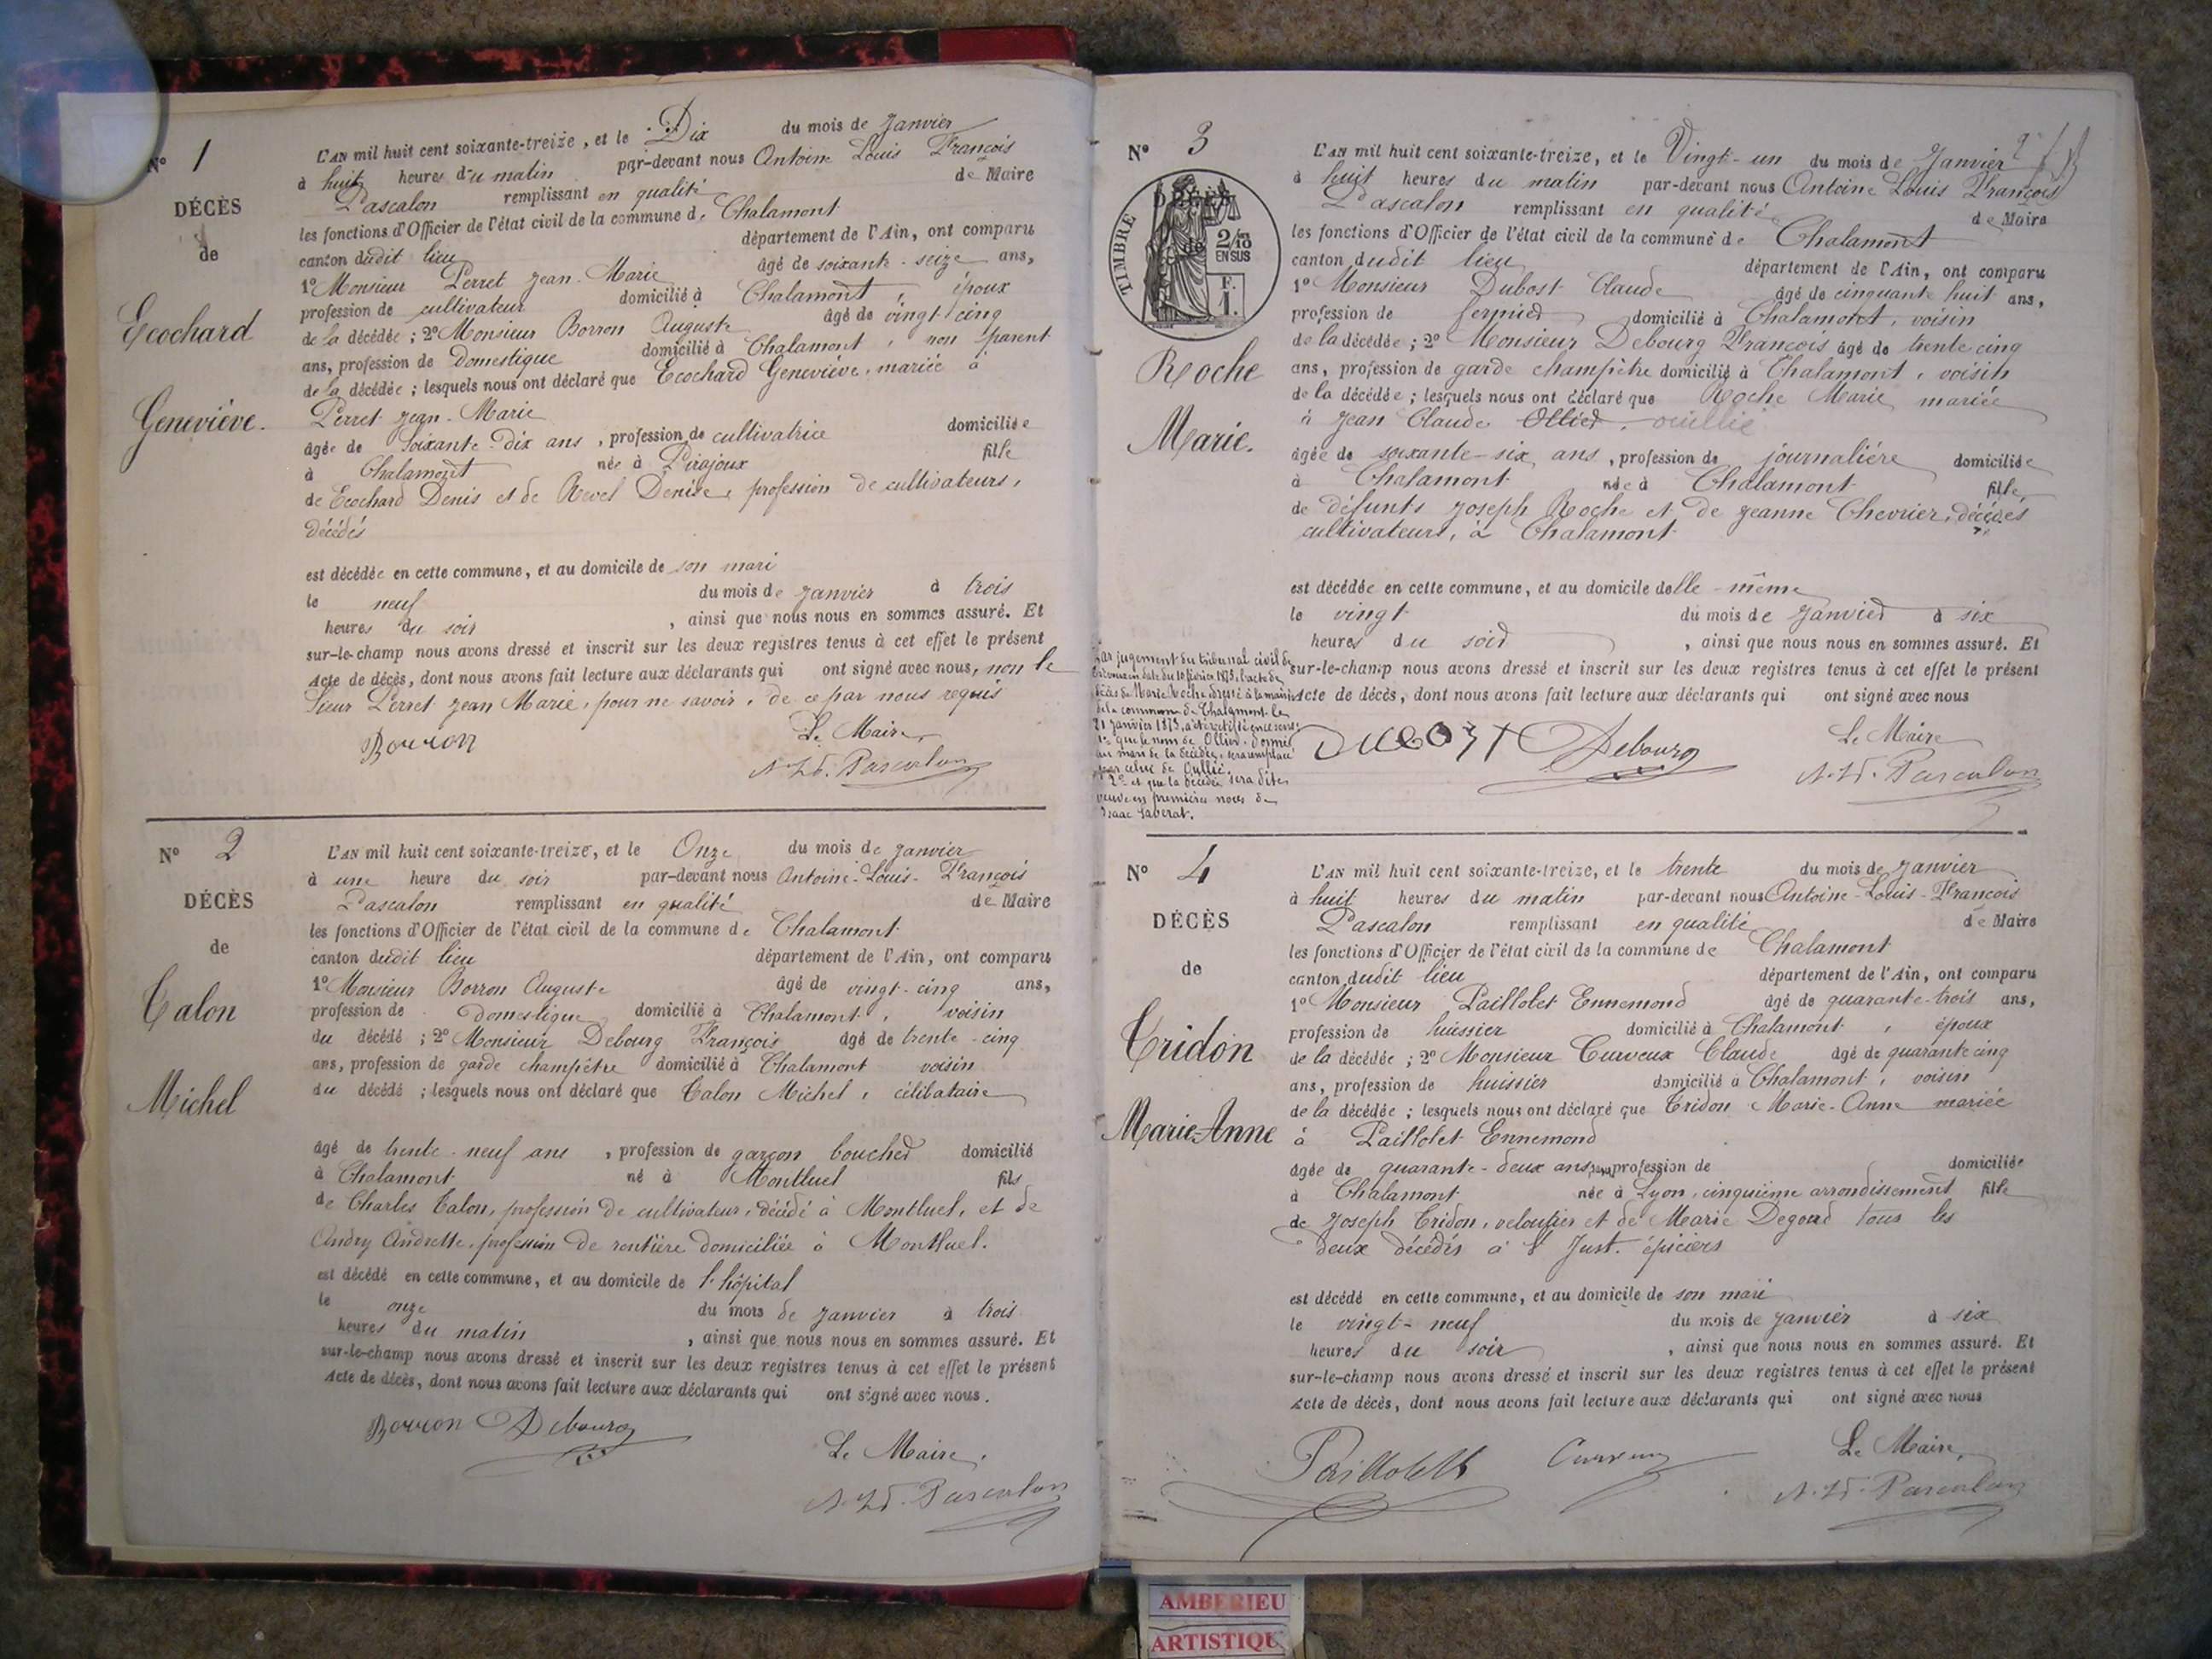 N° 1
DÉCÈS
de
Ecochard
Geneviève.
L'AN mil huit cent soixante-treize, et le Dix du mois de Janvier
à huit heures du matin par-devant nous Antoine Louis François
Pascalon remplissant en qualité de Maire
les fonctions d'Officier de l'état civil de la commune de Chalamont
canton dudit lieu département de l'Ain, ont comparu
1° Monsieur Perret Jean-Marie âgé de soixante-seize ans,
profession de cultivateur domicilié à Chalamont, époux
de la décédée ; 2° Monsieur Borron Auguste âgé de vingt-cinq
ans, profession de domestique domicilié à Chalamont, non parent
de la décédée ; lesquels nous ont déclaré que Ecochard Geneviève, mariée à
Perret Jean-Marie
âgée de soixante-dix ans, profession de cultivatrice domiciliée
à Chalamont née à Pirajoux fille
de Ecochard Denis et de Revel Denise, profession de cultivateurs,
décédés
est décédée en cette commune, et au domicile de son mari
le neuf du mois de Janvier à trois
heures du soir, ainsi que nous nous en sommes assuré. Et
sur-le-champ nous avons dressé et inscrit sur les deux registres tenus à cet effet le présent
Acte de décès, dont nous avons fait lecture aux déclarants qui ont signé avec nous, non le
Sieur Perret Jean Marie, pour ne savoir, de ce par nous requis
Borron Le Maire
A. Ls. F. Pascalon
N° 2
DÉCÈS
de
Talon
Michel
L'AN mil huit cent soixante-treize, et le Onze du mois de Janvier
à une heure du soir par-devant nous Antoine-Louis-François
Pascalon remplissant en qualité de Maire
les fonctions d'Officier de l'état civil de la commune de Chalamont
canton dudit lieu département de l'Ain, ont comparu
1° Monsieur Borron Auguste âgé de vingt-cinq ans,
profession de domestique domicilié à Chalamont, voisin
du décédé ; 2° Monsieur Debourg François âgé de trente-cinq
ans, profession de garde champêtre domicilié à Chalamont voisin
du décédé ; lesquels nous ont déclaré que Talon Michel, célibataire
âgé de trente-neuf ans, profession de garçon boucher domicilié
à Chalamont né à Montluel fils
de Charles Talon, profession de cultivateur, décédé à Montluel, et de
Andry Andrette, profession de rentière domiciliée à Montluel.
est décédé en cette commune, et au domicile de l'hôpital
le onze du mois de Janvier à trois
heures du matin, ainsi que nous nous en sommes assuré. Et
sur-le-champ nous avons dressé et inscrit sur les deux registres tenus à cet effet le présent
Acte de décès, dont nous avons fait lecture aux déclarants qui ont signé avec nous.
Borron Debourg
Le Maire,
A. Ls. F. Pascalon
N° 3
TIMBRE
DÉCÈS
de
2/10
EN SUS
F.
1.
Roche
Marie.
L'AN mil huit cent soixante-treize, et le Vingt-un du mois de Janvier
à huit heures du matin par-devant nous Antoine Louis François
Pascalon remplissant en qualité de Maire
les fonctions d'Officier de l'état civil de la commune de Chalamont
canton dudit lieu département de l'Ain, ont comparu
1° Monsieur Dubost Claude âgé de cinquante huit ans,
profession de domicilié à Chalamont, voisin
de la décédée ; 2° Monsieur Debourg François âgé de trente cinq
ans, profession de garde champêtre domicilié à Chalamont, voisin
de la décédée ; lesquels nous ont déclaré que Roche Marie, mariée
à Jean Claude Ollier, ouillié
âgée de soixante-six ans, profession de journalière domiciliée
à Chalamont née à Chalamont fille
de défunts Joseph Roche et de Jeanne Chevrier, décédés
cultivateurs, à Chalamont
est décédée en cette commune, et au domicile delle-même
le vingt du mois de Janvier à six
heures du soir, ainsi que nous nous en sommes assuré. Et
sur-le-champ nous avons dressé et inscrit sur les deux registres tenus à cet effet le présent
Acte de décès, dont nous avons fait lecture aux déclarants qui ont signé avec nous
Par jugement du tribunal civil de
date du 10 février 1873, l'acte de
décès de Marie Roche dressé à la mairie
de la commune de Chalamont le
21 Janvier 1873, a été rectifié en ce sens:
1° que le nom de Ollier donné
au mari de la décédée, sera remplacé
par celui de Oullié.
2° et que la décédée sera dite
veuve en premières noces de
Isaac Laberat.
DUBOST Debourg Le Maire
A. Ls. F. Pascalon
N° 4
DÉCÈS
de
Tridon
Marie-Anne
L'AN mil huit cent soixante-treize, et le trente du mois de Janvier
à huit heures du matin par-devant nous Antoine-Louis-François
Pascalon remplissant en qualité de Maire
les fonctions d'Officier de l'état civil de la commune de Chalamont
canton dudit lieu département de l'Ain, ont comparu
1° Monsieur Paillolet Ennemond âgé de quarante-trois ans,
profession de huissier domicilié à Chalamont, époux
de la décédée ; 2° Monsieur Curveux Claude âgé de quarante cinq
ans, profession de huissier domicilié à Chalamont, voisin
de la décédée ; lesquels nous ont déclaré que Tridon Marie-Anne mariée
à Paillolet Ennemond
âgée de quarante-deux ans, sans profession de domiciliée
à Chalamont née à Lyon, cinquième arrondissement fille
de Joseph Tridon, veloutier et de Marie Degond tous les
deux décédés à St Just. épiciers
est décédé en cette commune, et au domicile de son mari
le vingt-neuf du mois de Janvier à six
heures du soir, ainsi que nous nous en sommes assuré. Et
sur-le-champ nous avons dressé et inscrit sur les deux registres tenus à cet effet le présent
Acte de décès, dont nous avons fait lecture aux déclarants qui ont signé avec nous
Paillolet Curveux Le Maire,
A. Ls. F. Pascalon
AMBERIEU
ARTISTIQU